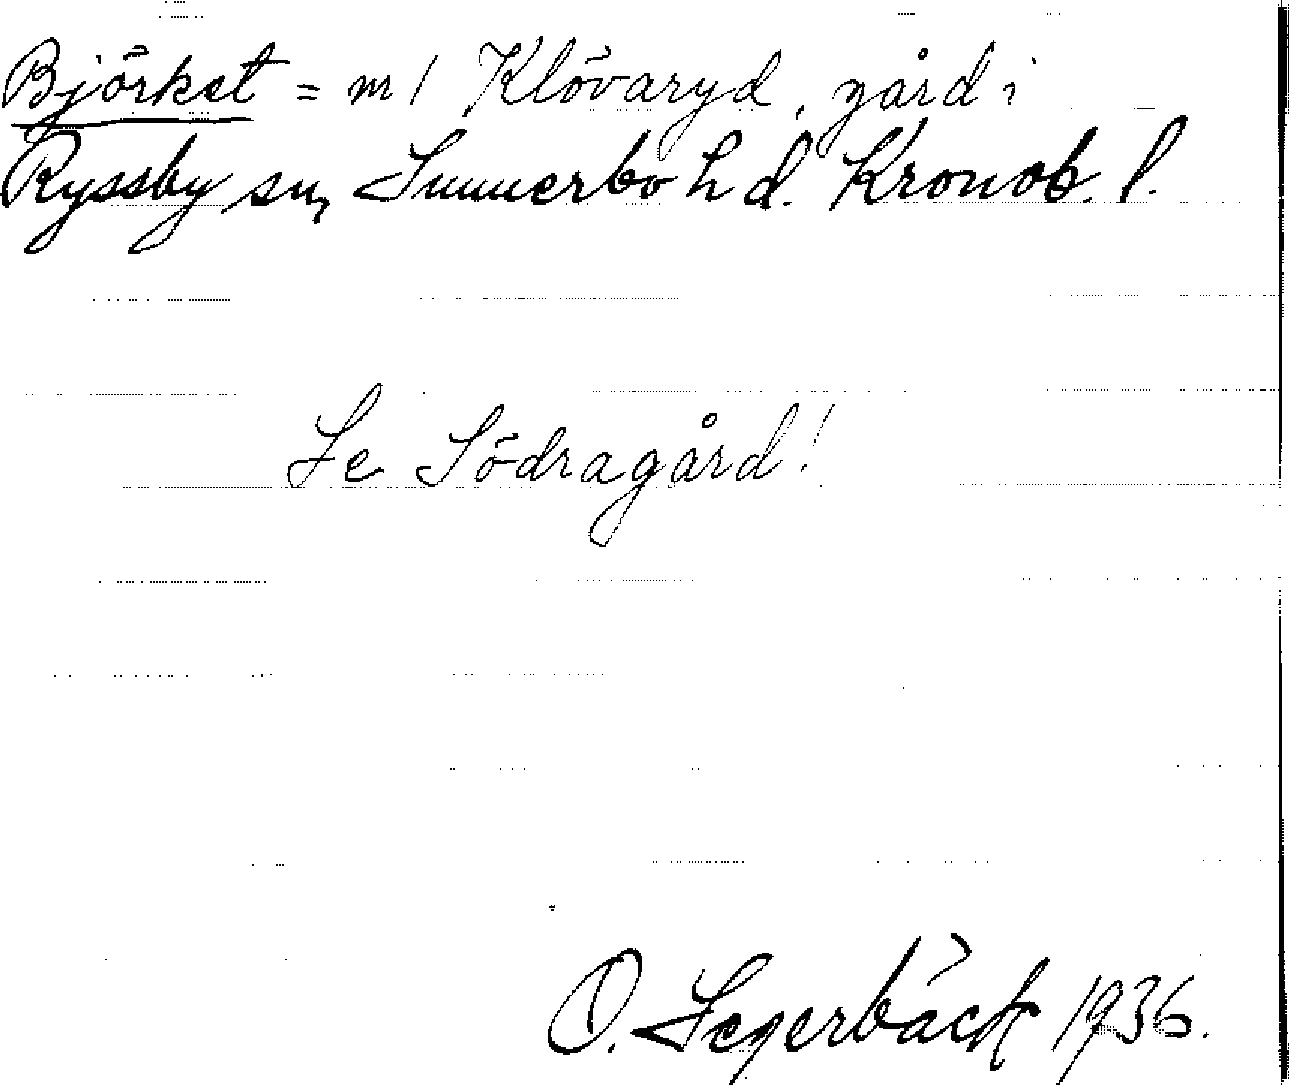 Björket = m / Klövaryd, gård i
Ryssby sn, Sunnerbo hd. Kronob. l.
Se Södragård!
O. Segerbäck 1936.